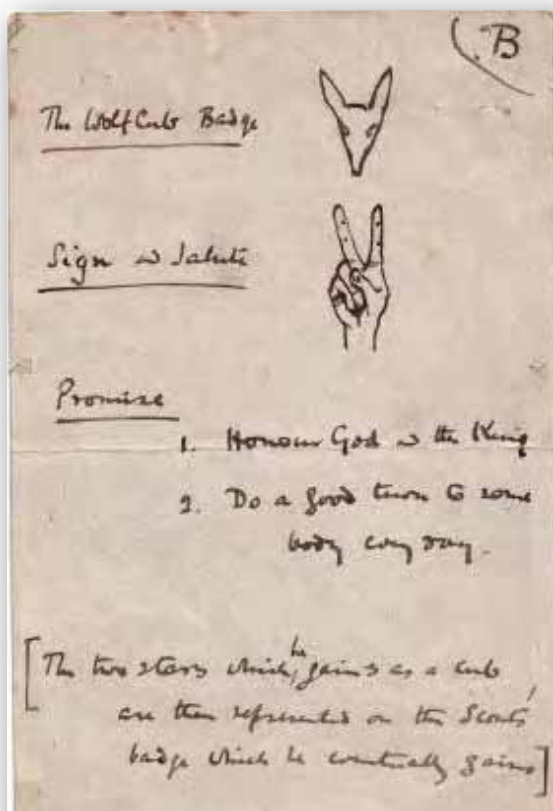 B
The Wolf Cub Badge
Sign & Salute
Promise
1. Honour God & the King
2. Do a good turn to some
body every day.
[The two stars which he gains as a Cub
are then represented on the Scouts'
badge which he eventually gains]